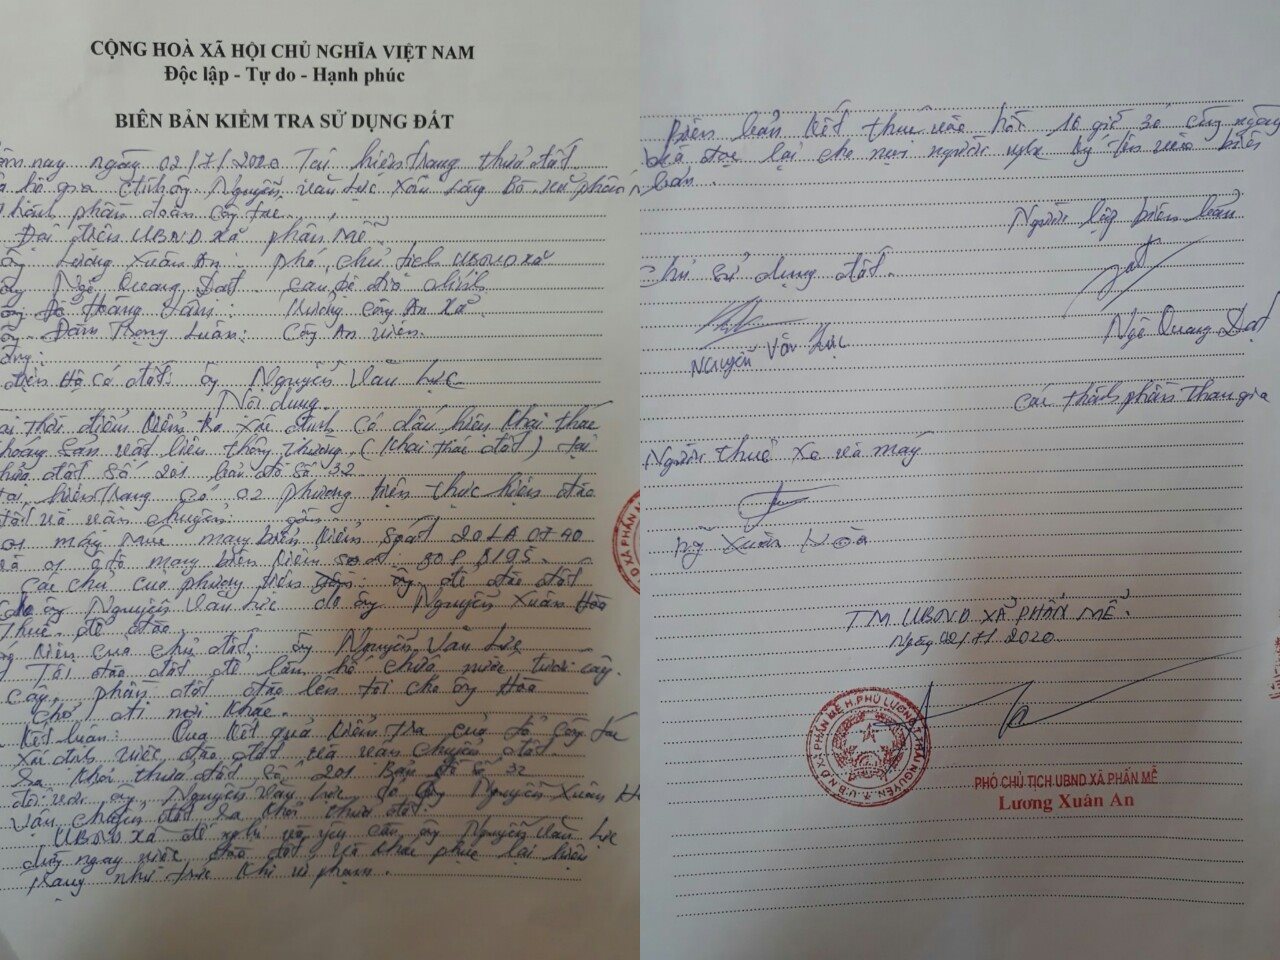 CỘNG HOÀ XÃ HỘI CHỦ NGHĨA VIỆT NAM
Độc lập - Tự do - Hạnh phúc
BIÊN BẢN KIỂM TRA SỬ DỤNG ĐẤT
nay ngày 02/7/2020 Tại hiện trạng thửa đất
hộ gia đình ông Nguyễn Văn Lực xóm Làng Bò xã phấn
thành phần đoàn công tác
Đại diện UBND xã phấn Mễ
ông Lương Xuân An : phó chủ tịch UBND xã
Ngô Quang Đạt cán bộ địa chính
Đỗ Hoàng Văn : trưởng công An xã
Đàm Trọng Luân : Công An viên
diện Hộ có đất: ông Nguyễn Văn Lực
Nội dung
thời điểm kiểm tra xác định có dấu hiệu khai thác
khoáng sản vật liệu thông thường ( khai thác đất ) tại
thửa đất số 201 bản đồ số 32
tại hiện trạng có 02 phương tiện thực hiện đào
đất và vận chuyển: gồm
01 máy múc mang biển kiểm soát 20LA 0740
và 01 ô tô mang biển kiểm soát
Các chủ của phương tiện ông để đào đất
cho ông Nguyễn Văn Lực do ông Nguyễn Xuân Hòa
Thuê để đào
kiến của chủ đất: ông Nguyễn Văn Lực
Tôi đào đất để làm hố chứa nước tưới cây
phần đất đào lên tôi cho ông Hòa
chở đi nơi khác.
Kết luận: Qua kết quả kiểm tra của tổ công tác
Xác định việc đào đất và vận chuyển đất
Ra khỏi thửa đất số 201 Bản đồ số 32
đối với ông Nguyễn Văn Lực do ông Nguyễn Xuân H
vận chuyển đất ra khỏi thửa đất
UBND xã đề nghị và yêu cầu ông Nguyễn Văn Lực
dừng ngay việc đào đất, và khắc phục lại hiện
trạng như trước khi vi phạm.
Biên bản kết thúc vào hồi 16 giờ 30 cùng ngày
đã đọc lại cho mọi người nghe ký tên vào biên
bản.
Người lập biên bản
Chủ sử dụng đất.
Nguyễn Văn Lực
Ngô Quang Đạt
các thành phần tham gia
Người thuê xe và máy
Ng Xuân Hòa
TM UBND XÃ PHẤN MỄ.
Ngày 02/7/2020
U.B.N.D XÃ PHẤN MỄ H.PHÚ LƯƠNG T.THÁI NGUYÊN
PHÓ CHỦ TỊCH UBND XÃ PHẤN MỄ
Lương Xuân An